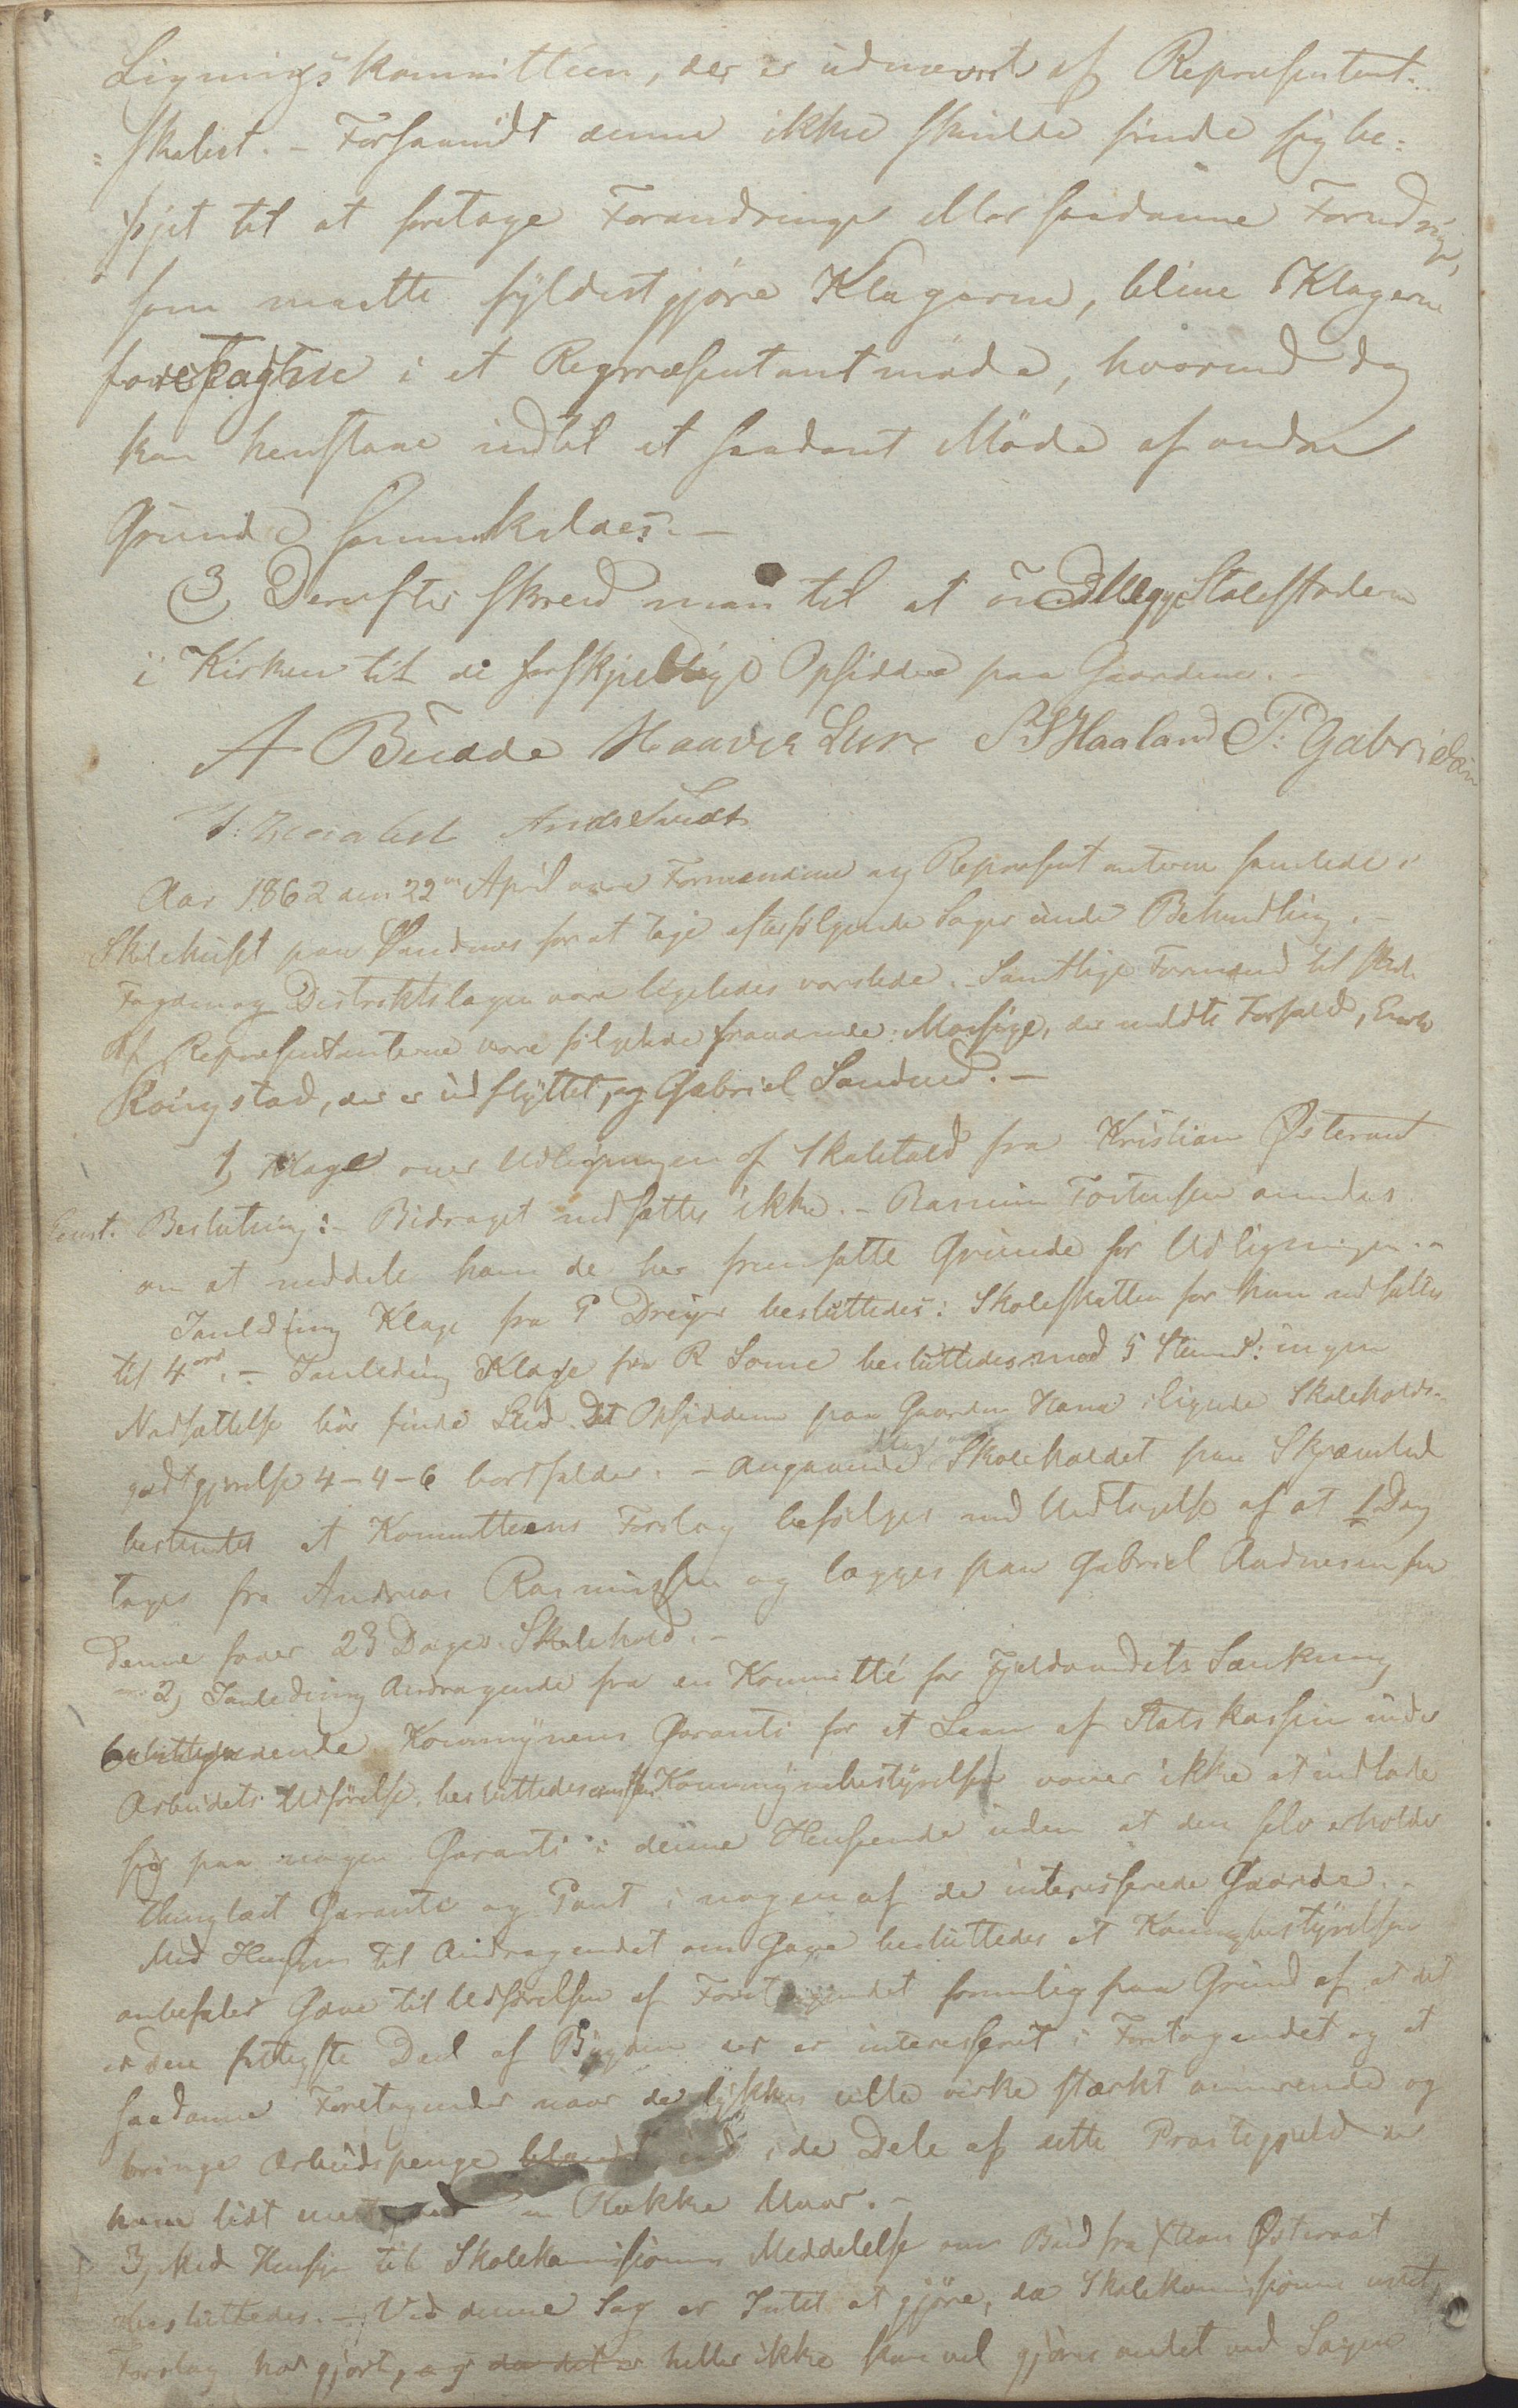 Ligningskommitteen, der er udnævnt af Repræsentant-
skabet. – Forsaavidt denne ikke skulde finde sig be-
føjet til at foretage Forandringer eller saadanne Forandringer,
som maatte fyldestgjöre Klagerne, blive Klagerne
foretagne i et Repræsentantmöde, hvormed dog
kan henstaae indtil et saadant Möde af andre
Grunde sammenkaldes. –
3) Derefter skred man til at udlægge Stolestaderne
i Kirken til de forskjellige Opsiddere paa Gaardene. –
A Budde Haaver Lura Haaland T. Gabrielsen
Aar 1862 den 22de April vare Formændene og Repræsentanterne samlede i
Skolehuset paa Sandnes for at tage efterfølgende Sager under Behandling. –
Fogden og Distriktslægen vare ligeledes varslede. Samtlige Formænd til Stede.
Af Repræsentanterne vare følgende fraværende: Massige, der meldte Forfald,
Roingstad, der er udflyttet, og Gabriel Sandved. –
1, Klage over Udligningen af Skatetold fra Kristian Østeraat
Beslutning: – Bidraget nedsættes ikke. – Rasmus Tostensen anmodes
om at meddele ham de her fremsatte Grunde for Udligningen. –
I Anledning Klage fra P Dreyer besluttedes: Skoleskatten for ham nedsættes
til 4 ort. – I Anledning Klage fra R Some besluttedes med 5 Stemmer: ingen
Nedsættelse bör finde Sted. Det Opsidderne paa Gaarden Hana ilignede Skoleholds-
godtgjørelse 4–4–6 bortfalder. – Angaaende Skoleholdet paa Skjæveland
bestemtes at Kommitteens Forslag befølges med Undtagelse af at 1 Dag
tages fra Andreas Rasmussen og lægges paa Gabriel Andreassen saa
denne faaer 23 Dages Skolehold. –
2, I Anledning Andragende fra en Kommitté for Fjeldvandets Sænkning
Kommunens Garanti for et Laan af Statskassen under
Arbeidets Udførelse, besluttedes Kommunebestyrelsen vover ikke at indlade
sig paa nogen Garanti i denne Henseende uden at den selv erholder
thinglæst Garanti og Pant i nogen af de interesserede Gaarde. –
Med Hensyn til Andragendet om Gave besluttedes at Kommunebestyrelsen
anbefaler Gave til Udførelsen af Foretagendet fornemlig paa Grund af at det
er den fattigste Deel af Bygden der er interesseret i Foretagendet og at
saadanne Foretagender naar de lykkes ville virke stærkt animerende og
bringe Arbeidspenge ind i de Dele af dette Præstegjeld der
have lidt en Række Uaar. –
3, Med Hensyn til Skolekommissionens Meddelelse om Bud fra Østeraat
besluttedes. – Ved denne Sag er Intet at gjöre, da Skolekommissionen intet
Forslag har gjort, og da det er heller ikke skan vel gjöres andet ved Sagen